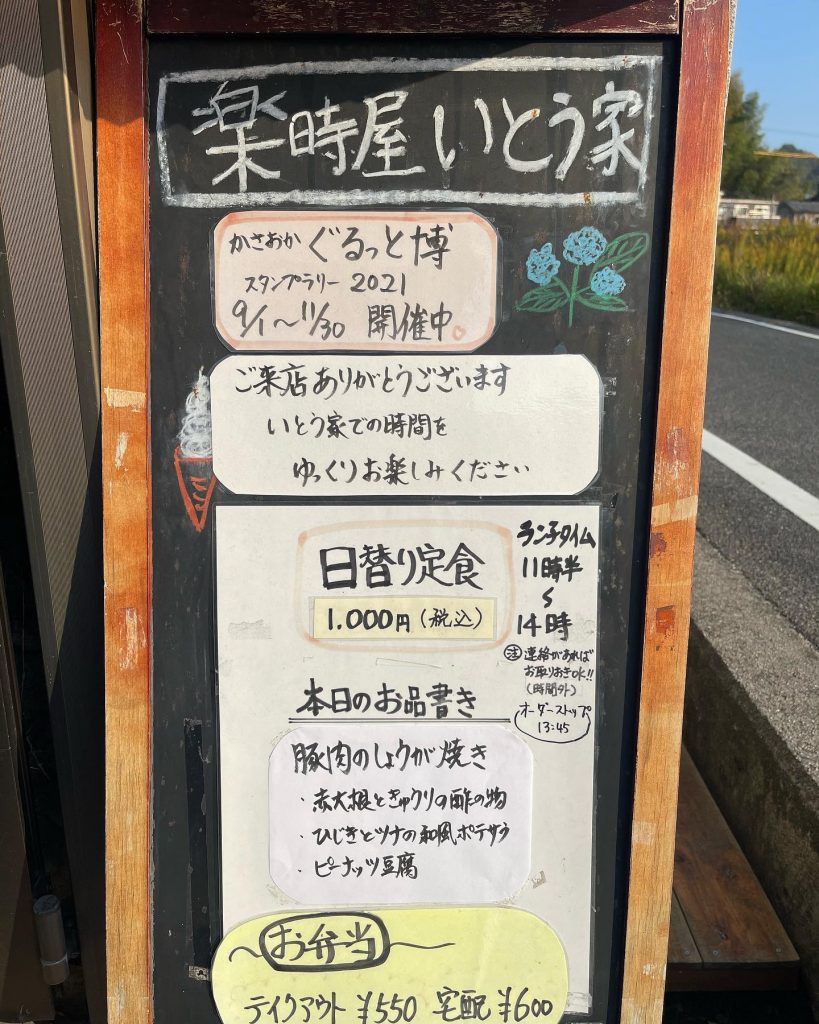 楽時屋 いとう家
かさおか ぐるっと博
スタンプラリー 2021
9/1〜11/30 開催中。
ご来店ありがとうございます
いとう家での時間を
ゆっくりお楽しみください
日替り定食
1.000円(税込)
ランチタイム
11時半
〜
14時
㊟連絡があれば
お取りおきOK!!
(時間外)
オーダーストップ
13:45
本日のお品書き
豚肉のしょうが焼き
・赤大根ときゅうりの酢の物
・ひじきとツナの和風ポテサラ
・ピーナッツ豆腐
〜お弁当〜
テイクアウト ¥550 宅配 ¥600